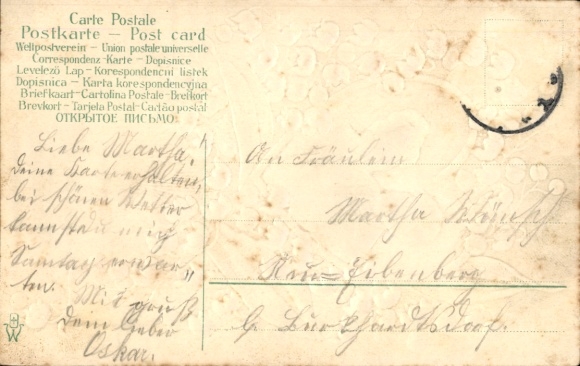 Carte Postale
Postkarte — Post card
Weltpostverein — Union postale universelle
Correspondenz-Karte — Dopisnice
Levelező Lap — Korespondencni lístek
Dopisnica — Karta korespondencyjna
Briefkaart — Cartolina Postale — Brefkort
Brevkort — Tarjeta Postal — Cartão postal
ОТКРЫТОЕ ПИСЬМО
Liebe Martha,
deine Karte erhalten,
bei schönen Wetter
kannst du mich
Samtag erwar
ten.
Mit gruß
dein lieber
Oskar.
An Fräulein
Martha
Neu=Eibenberg
b. Burkhardtsdorf.